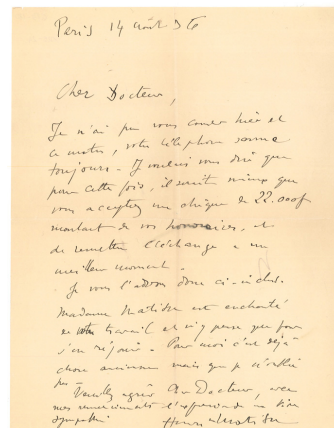 Paris 14 août 36
Cher Docteur,
Je n'ai pu vous causer hier et
ce matin, votre téléphone sonne
toujours. Je voulais vous dire que
pour cette fois, il serait mieux que
vous acceptiez un chèque de 22.000f
montant de vos honoraires, et
de remettre l'échange a un
meilleur moment.
Je vous l'adresse donc ci-inclus.
Madame Matisse est enchanté
de votre travail et n'y pense que pour
s'en réjouir. Pour moi c'est déjà
chose ancienne mais que je n'oublie
pas
Veuillez agréer Cher Docteur, avec
mes remerciements l'expression de
sympathie
Henri Matisse